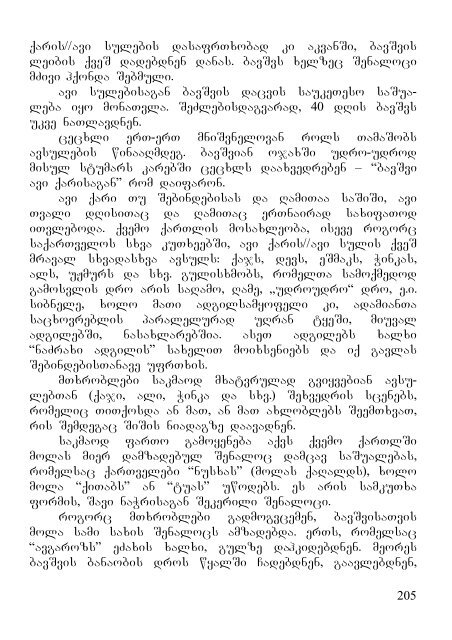 ქარის//ავი სულების დასაფრთხობად კი აკვანში, ბავშვის
ლეიბის ქვეშ დადებდნენ დანას. ბავშვს ხელზეც შენალოცი
მძივი ჰქონდა შებმული.
ავი სულებისაგან ბავშვის დაცვის საუკეთესო საშუა-
ლება იყო მონათვლა. შეძლებისდაგვარად, 40 დღის ბავშვს
უკვე ნათლავდნენ.
ცეცხლი ერთ-ერთ მნიშვნელოვან როლს თამაშობს
ავსულების წინააღმდეგ. ბავშვიან ოჯახში უდრო-უდროდ
მისულ სტუმარს კარებში ცეცხლს დაახვედრებენ – “ბავშვი
ავი ქარისაგან” რომ დაიფარონ.
ავი ქარი თუ შებინდებისას და ღამითაა საშიში, ავი
თვალი დღისითაც და ღამითაც ერთნაირად სახიფათოდ
ითვლებოდა. ქვემო ქართლის მოსახლეობა, ისევე როგორც
საქართველოს სხვა კუთხეებში, ავი ქარის//ავი სულის ქვეშ
მრავალ სხვადასხვა ავსულს: ქაჯს, დევს, ეშმაკს, ჭინკას,
ალს, უჟმურს და სხვ. გულისხმობს, რომელთა სამოქმედოდ
გამოსვლის დრო არის საღამო, ღამე, „უდროუდრო” დრო, ე.ი.
სიბნელე, ხოლო მათი ადგილსამყოფელი კი, ადამიანთა
საცხოვრებლის პარალელურად უღრან ტყეში, მიუვალ
ადგილებში, ნასახლარებშია. ასეთ ადგილებს ხალხი
“ნაძრახი ადგილის” სახელით მოიხსენიებს და იქ გავლას
შებინდებისთანავე უფრთხის.
მთხრობლები საკმაოდ მხატვრულად გვიყვებიან ავსუ-
ლებთან (ქაჯი, ალი, ჭინკა და სხვ.) შეხვედრის სცენებს,
რომელიც თითქოსდა ან მათ, ან მათ ახლობლებს შეემთხვათ,
რის შემდეგაც შიშის ნიადაგზე დაავადნენ.
საკმაოდ ფართო გამოყენება აქვს ქვემო ქართლში
მოლას მიერ დამზადებულ შენალოც დამცავ საშუალებას,
რომელსაც ქართველები “ნუსხას” (მოლას ქაღალდს), ხოლო
მოლა “ქითაბს” ან “ტუას” უწოდებს. ეს არის სამკუთხა
ფორმის, შავი ნაჭრისაგან შეკერილი შენალოცი.
როგორც მთხრობლები გადმოგვცემენ, ბავშვისათვის
მოლა სამი სახის შენალოცს ამზადებდა. ერთს, რომელსაც
“ავგაროზს” ეძახის ხალხი, გულზე დაჰკიდებდნენ. მეორეს
ბავშვის ბანაობის დროს წყალში ჩადებდნენ, გაავლებდნენ,
205